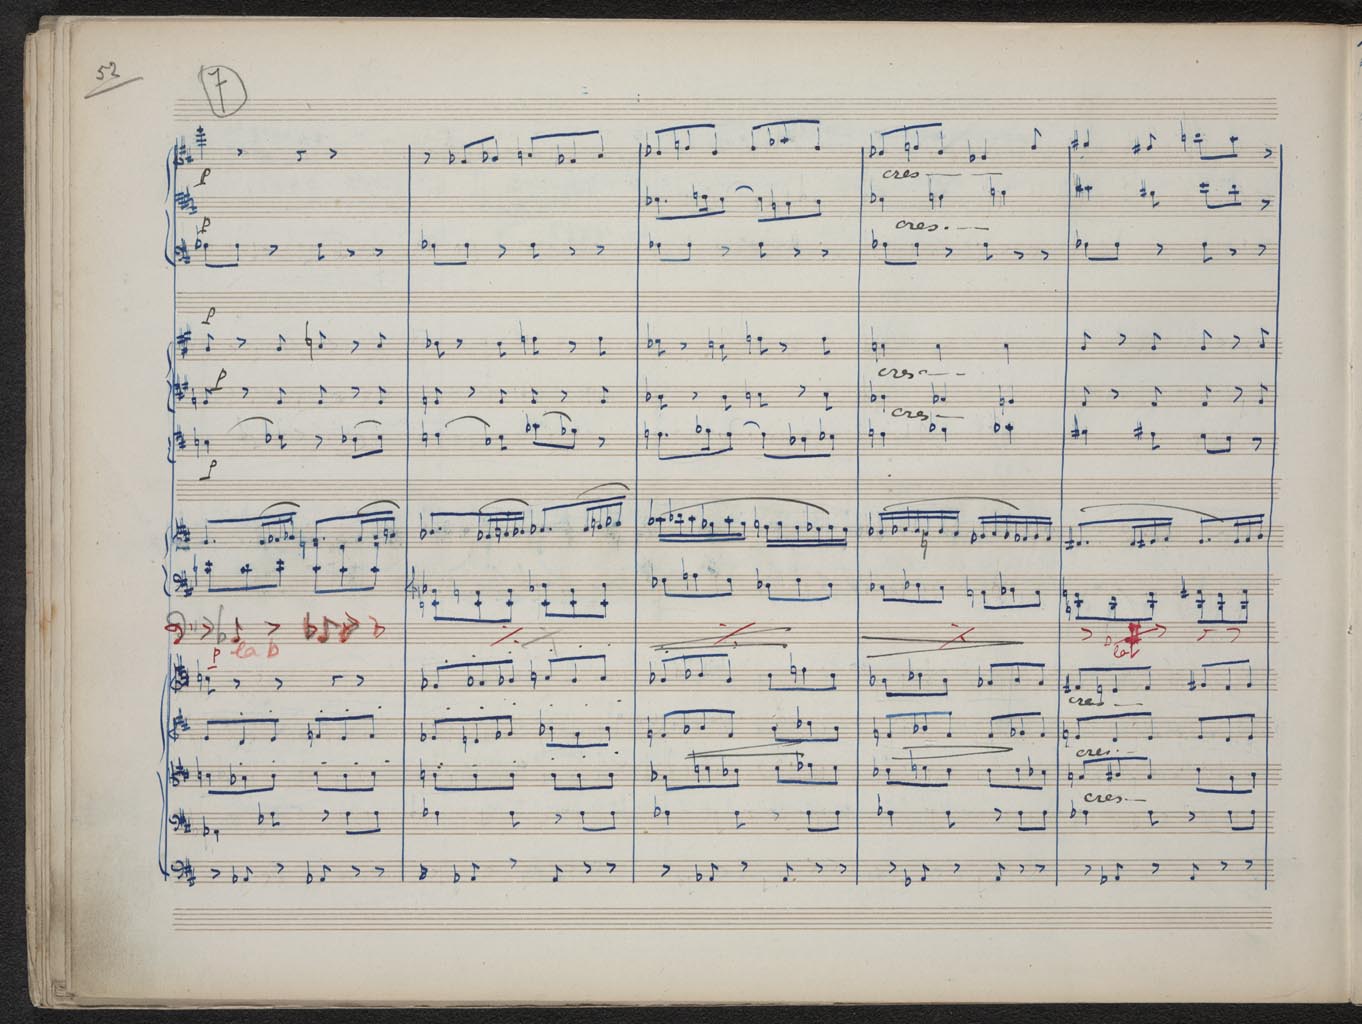 52
7
p
cres
p
cres.
p
p
cres
cres
p
p
la b
cres
cres.
cres